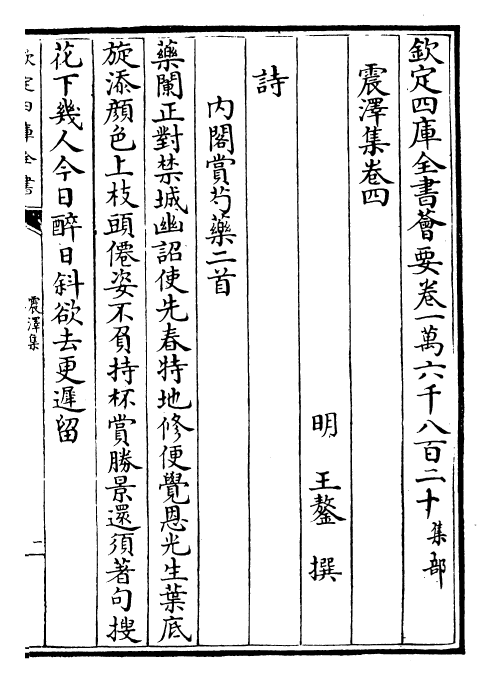 欽定四庫全書薈要卷一萬六千八百二十集部
震澤集卷四
明 王鏊 撰
詩
內閣賞芍藥二首
藥闌正對禁城幽詔使先春特地修便覺恩光生葉底
旋添顔色上枝頭僊姿不負持杯賞勝景還須著句搜
花下幾人今日醉日斜欲去更遲留
欽定四庫全書
震澤集